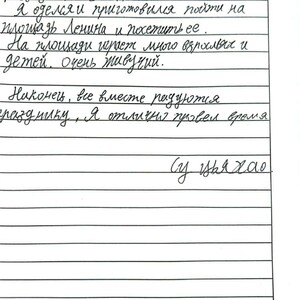 Я оделся и приготовился пойти на
площадь Ленина и посетить её.
На площади гуляет много взрослых и
детей. Очень живучий.
Наконец, все вместе радуются
празднику, Я отлично провел время
Су Цзяхао.